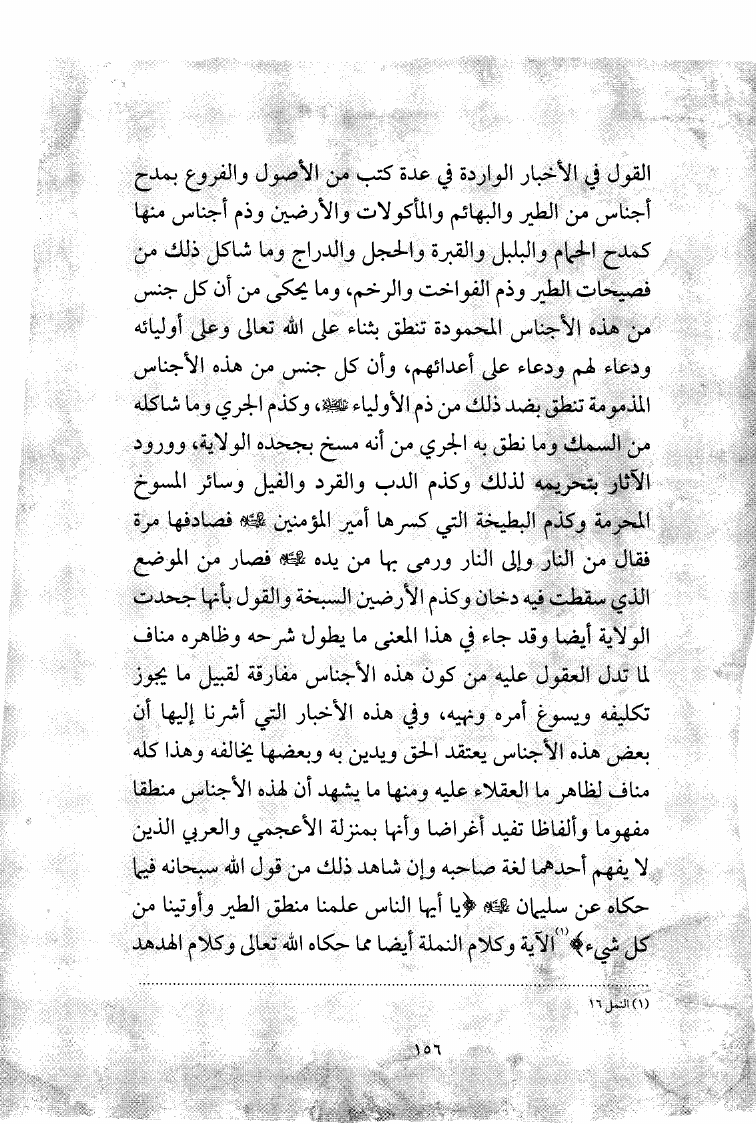 القول في الأخبار الواردة في عدة كتب من الأصول والفروع بمدح
أجناس من الطير والبهائم والمأكولات والأرضين وذم أجناس منها
كمدح الحمام والبلبل والقبرة والحجل والدراج وما شاكل ذلك من
فصيحات الطير وذم الفواخت والرخم، وما يحكى من أن كل جنس
من هذه الأجناس المحمودة تنطق بثناء على الله تعالى وعلى أوليائه
ودعاء لهم ودعاء على أعدائهم، وأن كل جنس من هذه الأجناس
المذمومة تنطق بضد ذلك من ذم الأولياء، وكذم الجري وما شاكله
من السمك وما نطق به الجري من أنه مسخ بجحده الولاية، وورود
الآثار بتحريمه لذلك وكذم الدب والقرد والفيل وسائر المسوخ
المحرمة وكذم البطيخة التي كسرها أمير المؤمنين فصادفها مرة
فقال من النار وإلى النار ورمى بها من يده فصار من الموضع
الذي سقطت فيه دخان وكذم الأرضين السبخة والقول بأنها جحدت
الولاية أيضا وقد جاء في هذا المعنى ما يطول شرحه وظاهره مناف
لما تدل العقول عليه من كون هذه الأجناس مفارقة لقبيل ما يجوز
تكليفه ويسوغ أمره ونهيه، وفي هذه الأخبار التي أشرنا إليها أن
بعض هذه الأجناس يعتقد الحق ويدين به وبعضها يخالفه وهذا كله
مناف لظاهر ما العقلاء عليه ومنها ما يشهد أن لهذه الأجناس منطقا
مفهوما وألفاظا تفيد أغراضا وأنها بمنزلة الأعجمي والعربي الذين
لا يفهم أحدهما لغة صاحبه وإن شاهد ذلك من قول الله سبحانه فيما
حكاه عن سليمان ﴿يا أيها الناس علمنا منطق الطير وأوتينا من
كل شيء﴾(١) الآية وكلام النملة أيضا مما حكاه الله تعالى وكلام الهدهد
(١) النمل ١٦
١٥٦